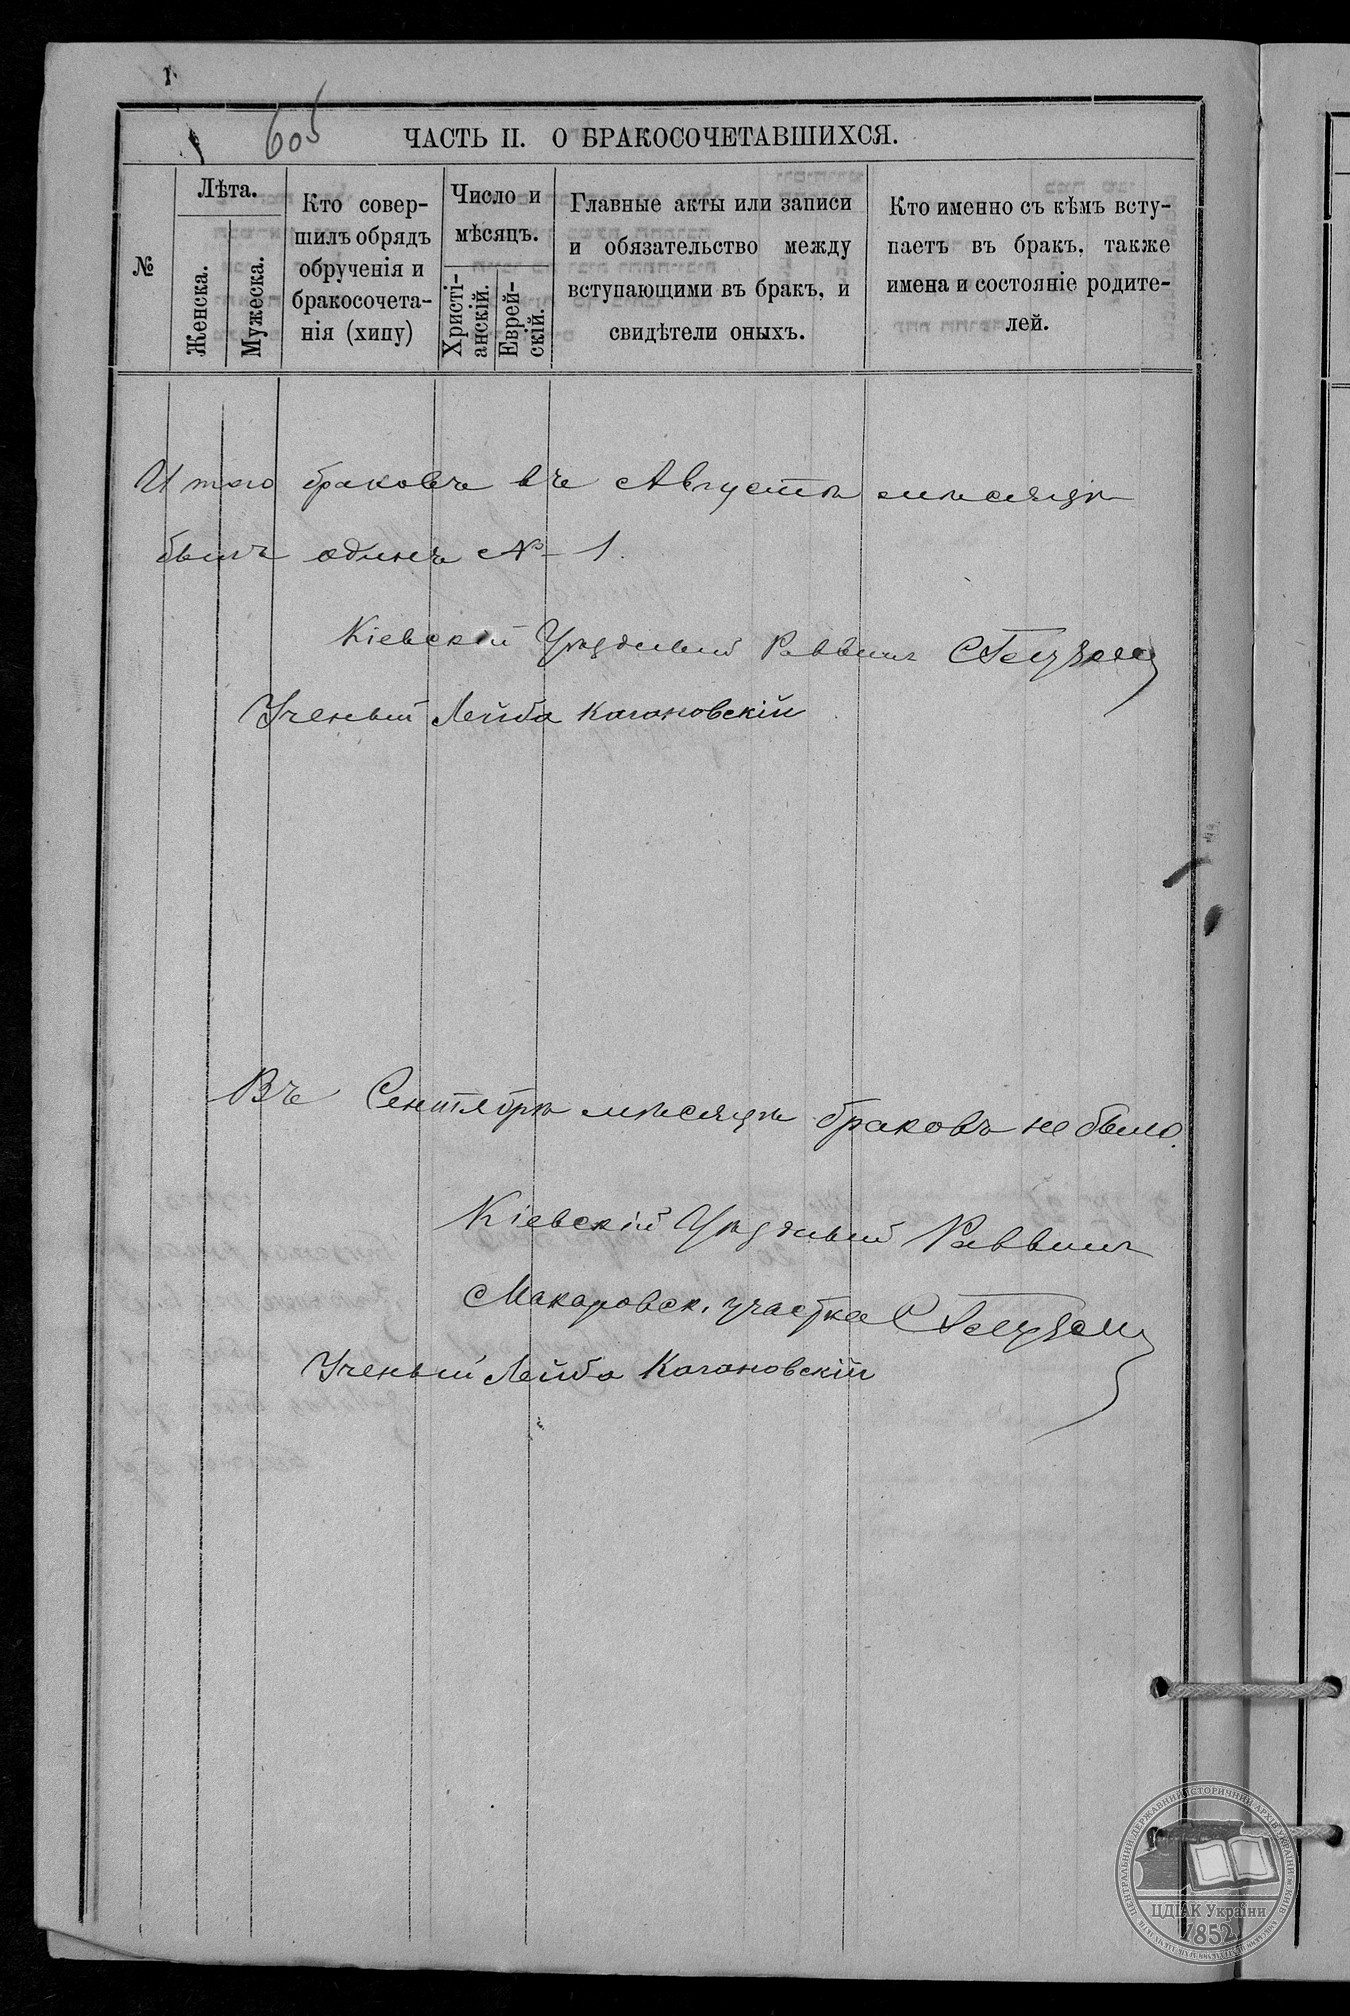 605
ЧАСТЬ II. О БРАКОСОЧЕТАВШИХСЯ.
№
Лѣта.
Женска.
Мужеска.
Кто совер-
шилъ обрядъ
обрученія и
бракосочета-
нія (хипу)
Число и
мѣсяцъ.
Христі-
анскій.
Еврей-
скій.
Главные акты или записи
и обязательство между
вступающими въ бракъ, и
свидѣтели оныхъ.
Кто именно съ кѣмъ всту-
паетъ въ бракъ, также
имена и состояніе родите-
лей.
Итого браковъ въ Августѣ мѣсяцѣ
былъ одинъ № 1.
Кіевскій Уѣздный Раввинъ
Ученый Лейба Кагановскій
Въ Сентябрѣ мѣсяцѣ браковъ не было.
Кіевскій Уѣздный Раввинъ
Макаровск. участка
Ученый Лейба Кагановскій
ЦЕНТРАЛЬНИЙ ДЕРЖАВНИЙ ІСТОРИЧНИЙ АРХІВ УКРАЇНИ М.КИЇВ
ЦДІАК України
1852